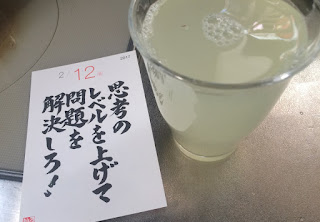 2017
2 12
思考の
レベルを上げて
問題を
解決しろ！